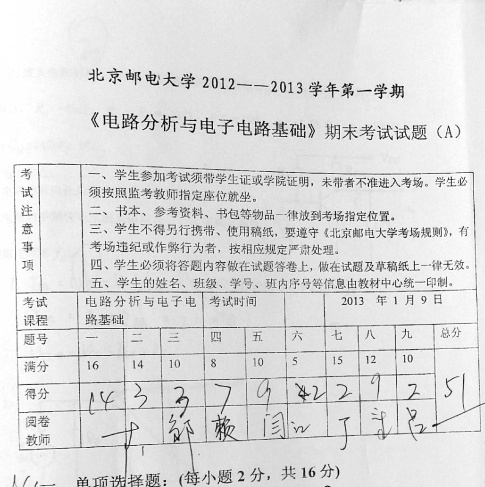 北京邮电大学 2012——2013 学年第一学期
《电路分析与电子电路基础》期末考试试题（A）
考试注意事项
一、学生参加考试须带学生证或学院证明，未带者不准进入考场。学生必
须按照监考教师指定座位就坐。
二、书本、参考资料、书包等物品一律放到考场指定位置。
三、学生不得另行携带、使用稿纸，要遵守《北京邮电大学考场规则》，有
考场违纪或作弊行为者，按相应规定严肃处理。
四、学生必须将答题内容做在试题答卷上，做在试题及草稿纸上一律无效。
五、学生的姓名、班级、学号、班内序号等信息由教材中心统一印制。
考试 电路分析与电子电 考试时间 2013 年 1 月 9 日
课程 路基础
题号 一 二 三 四 五 六 七 八 九 总分
满分 16 14 10 8 10 5 15 12 10
得分 14 3 3 7 9 2 2 9 2 51
阅卷
教师
一、单项选择题：(每小题 2 分，共 16 分)